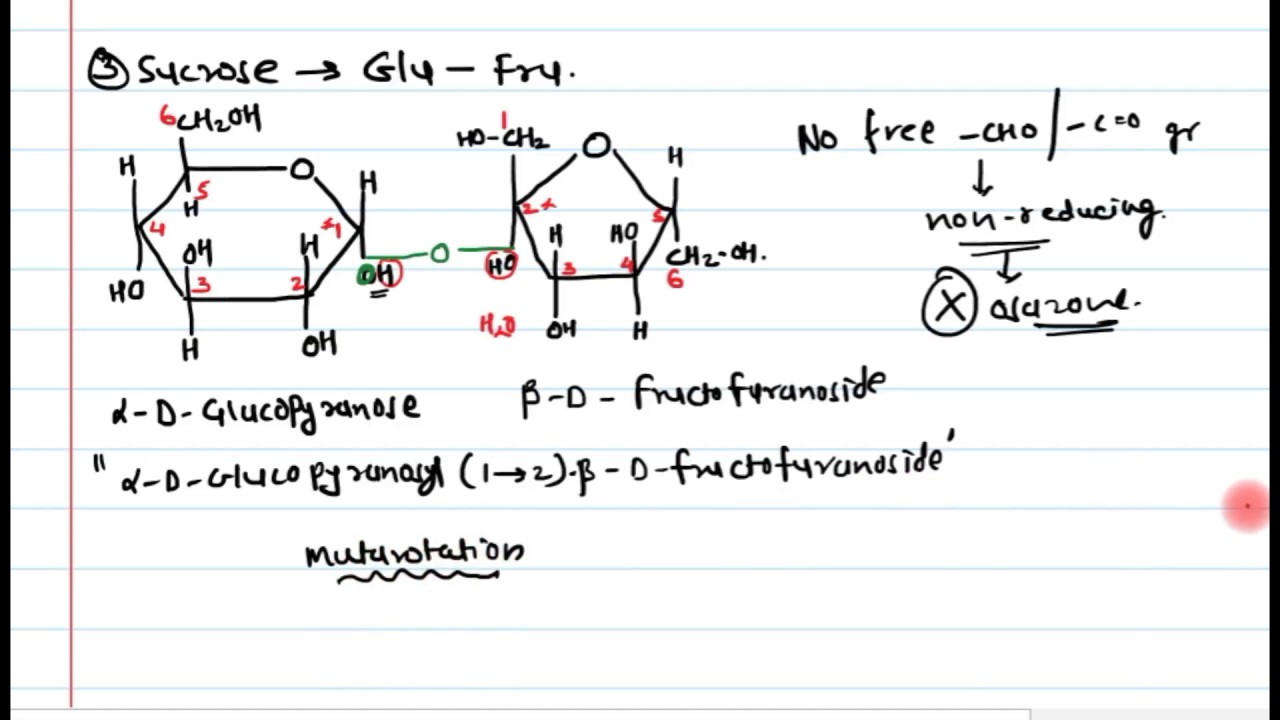 ③ Sucrose → Glu - Fru.
No free -CHO / -C=O gr
↓
non-reducing.
↓
Ⓧ osazone.
6 CH₂OH
H
O
H
5
H
4
*1
OH
H
HO
3
2
OH
H
OH
O
1
HO-CH₂
O
H
2*
5
H
HO
HO
3
4
CH₂-OH.
6
H₂O
OH
H
α-D-Glucopyranose
β-D-fructofuranoside
"α-D-Glucopyranosyl (1→2)-β-D-fructofuranoside"
Mutarotation